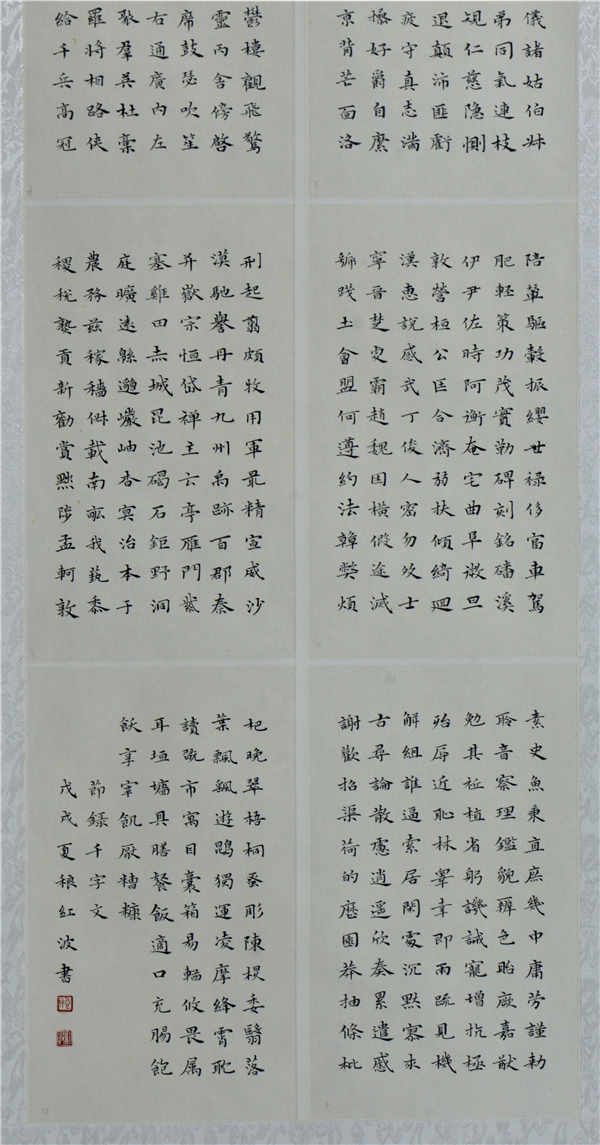 儀諸姑伯叔
弟同氣連枝
規仁慈隱惻
退顛沛匪虧
疲守真志滿
操好爵自縻
京背芒面洛
鬱樓觀飛驚
靈丙舍傍啓
席鼓瑟吹笙
右通廣內左
聚羣英杜稾
羅將相路俠
給千兵高冠
陪輦驅轂振纓世祿侈富車駕
肥輕策功茂實勒碑刻銘磻溪
伊尹佐時阿衡奄宅曲阜微旦
敦營桓公匡合濟弱扶傾綺迴
漢惠說感武丁俊乂密勿多士
寧晉楚更霸趙魏困橫假途滅
虢踐土會盟何遵約法韓弊煩
刑起翦頗牧用軍最精宣威沙
漠馳譽丹青九州禹跡百郡秦
并嶽宗恒岱禪主云亭雁門紫
塞雞田赤城昆池碣石鉅野洞
庭曠遠緜邈巖岫杳冥治本于
農務茲稼穡俶載南畝我藝黍
稷稅熟貢新勸賞黜陟孟軻敦
素史魚秉直庶幾中庸勞謹勑
聆音察理鑑貌辨色貽厥嘉猷
勉其祗植省躬譏誡寵增抗極
殆辱近恥林皋幸即兩疏見機
解組誰逼索居閑處沉默寥求
古尋論散慮逍遙欣奏累遣慼
謝歡招渠荷的歷園莽抽條枇
杷晚翠梧桐蚤彫陳根委翳落
葉飄颻遊鵾獨運凌摩絳霄耽
讀翫市寓目囊箱易輶攸畏屬
耳垣墻具膳餐飯適口充腸飽
飫享宰飢厭糟糠
節錄千字文
戊戌夏稂紅波書